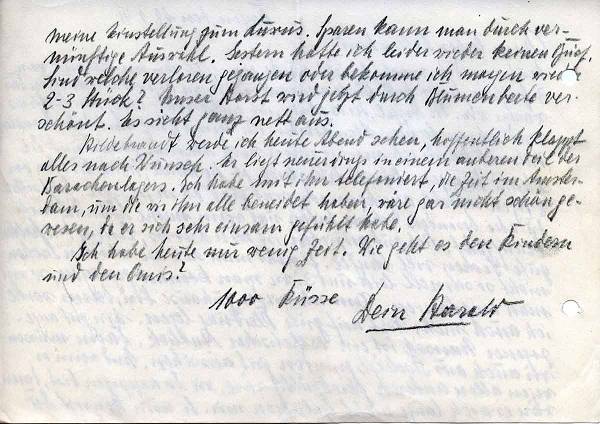 meine Einstellung zum Luxus. Sparen kann man durch ver-
nünftige Auswahl. Gestern hatte ich leider wieder keinen Gruß.
Sind welche verloren gegangen oder bekomme ich morgen wieder
2-3 Stück? Unser Horst wird jetzt durch Blumenbeete ver-
schönt. Es sieht ganz nett aus.
Hildebrandt werde ich heute Abend sehen, hoffentlich klappt
alles nach Wunsch. Er liegt neuerdings in einem anderen Teil des
Barackenlagers. Ich habe mit ihm telefoniert, die Zeit in Amster-
dam, um die wir ihn alle beneidet haben, wäre gar nicht schön ge-
wesen, da er sich sehr einsam gefühlt habe.
Ich habe heute nur wenig Zeit. Wie geht es den Kindern
und den Omis?
1000 Küsse Dein Harald